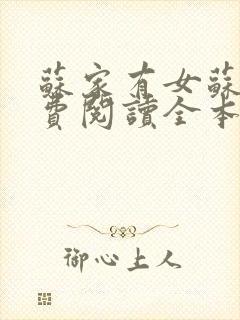 蘇家有女蘇
費閱讀全本
御心上人